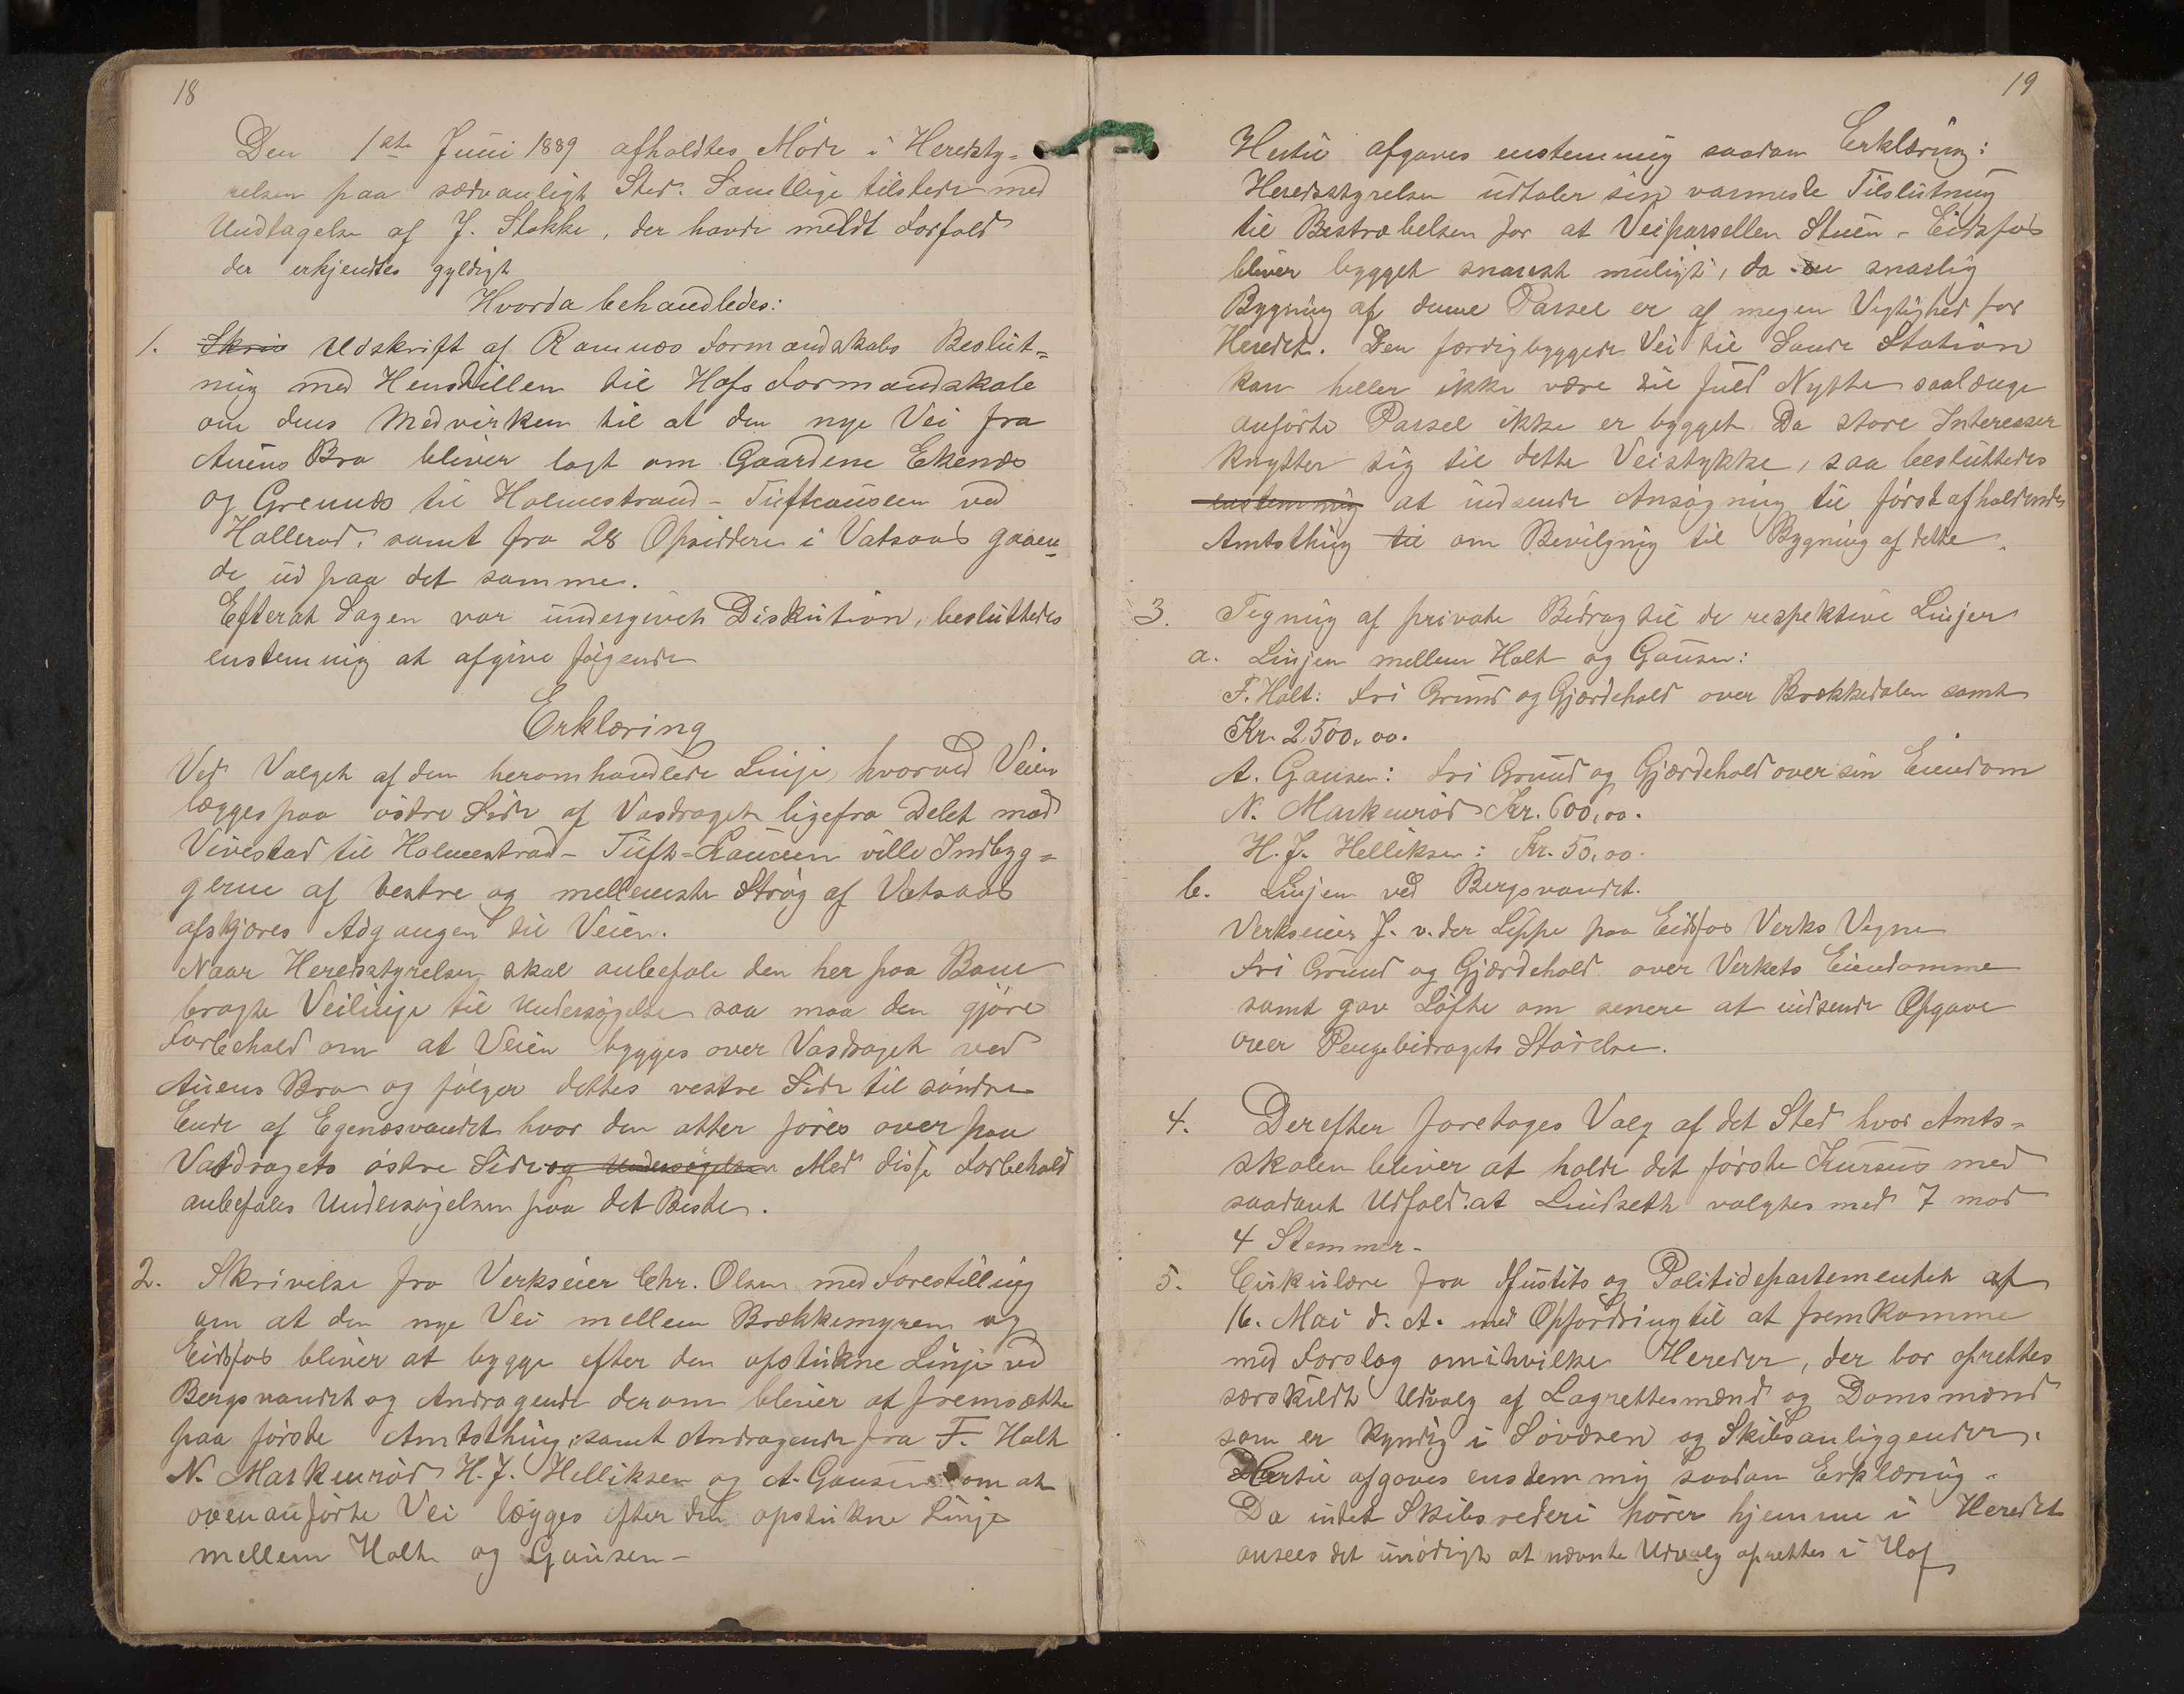 18
Den 1ste Juni 1889 afholdtes Møde i Heredsty=
relsen paa sædvanligt Sted. Samtlige tilstede med
Undtagelse af J. Stokke, der havde meldt Forfald
der erkjendtes gyldigt
Hvorda behandledes:
1. Skriv Udskrift af Ramnæs Formandskabs Beslut=
ning med Henstillen til Hofs Formandskab
om dens Medvirken til at den nye Vei fra
Auens Bro bliver lagt om Gaardene Ekenæs
og Grennæs til Holmestrand - Tuft
Hallerød, samt fra 28 Opsiddere i Vatsaas gaaen=
de ud paa det samme.
Efterat Sagen var undergivet Diskution, besluttedes
enstemmig at afgive følgende
Erklæring
Ved Valget af den heromhandlede Linje, hvorved Veien
lægges paa østre Side af Vasdraget ligefra Delet med
Vivestad til Holmestrad - Tuft=Raureen ville Indbyg=
gerne af vestre og mellemste Strøg af Vatsaas
afskjæres Adgangen til Veien.
Naar Heredsstyrelsen skal anbefale den her paa Bane
bragte Veilinje til Undersøgelse saa maa den gjøre
Forbehold om at Veien bygges over Vasdraget ved
Auens Bro og følger dettes vestre Side til søndre
Ende af Egenæsvandet hvor den atter føres over paa
Vatdragets østre Side og Undersøgelsen Med disse Forbehold
anbefales Undersøgelsen paa det Beste.
2. Skrivelse fra Verkseier Chr. Olsen med Forestilling
om at den nye Vei mellem Brækkemyren og
Eidsfos bliver at bygge efter den opstukne Linje ved
Bergsvandet og Andragende derom bliver at fremsætte
paa første Amtsthing; samt Andragende fra F. Holt
N. Markenrød H. J. Helliksen og A. Gausen om at
ovenanførte Vei lægges efter den opstukne Linje
mellem Holt og Gausen -
19
Hertil afgaves enstemmig saadan Erklæring:
Heredsstyrelsen udtaler sin varmeste Tilslutning
til Bestræbelsen for at Veiparsellen Stuen - Eidsfos
bliver bygget snarest muligt, da en snarlig
Bygning af denne Parsel er af megen Vigtighed for
Heredet. Den færdigbyggede Vei til Sande Station
kan heller ikke være til fuld Nytte saalænge
anførte Parsel ikke er bygget. Da store Interesser
knytter sig til dette Veistykke, saa besluttedes
enstemmig at indsende Ansøgning til førstafholdendes
Amtsthing til om Bevilgning til Bygning af dette.
3. Tegning af private Bidrag til de respektive Linjer
a. Linjen mellem Holt og Gausen:
F. Holt: Fri Grund og Gjærdehold over Brekkedalen samt
Kr. 2500,00.
A. Gausen: Fri Grund og Gjærdehold over sin Eiendom
N. Markenrød Kr. 600,00.
H. J. Helliksen: Kr. 50,00.
b. Linjen ved Bergsvandet.
Verkseier J. v. der Lippe paa Eidsfos Verks Vegne
Fri Grund og Gjærdehold over Verkets Eiendomme
samt gav Løfte om senere at indsende Opgave
over Pengebidragets Størelse.
4. Derefter foretoges Valg af det Sted hvor Amts=
skolen bliver at holde det første Kursus med
saadant Udfald at Lindseth valgtes med 7 mod
4 Stemmer -
5. Cirkulære fra Justits og Politidepartementet af
16. Mai d. A. med Opfordring til at fremkomme
med Forslag om i hvilke Hereder, der bør oprettes
særskildt Udvalg af Lagrettesmænd og Domsmænd
som er kyndig i Søvæsen og Skibsanliggender.
Hertil afgaves enstemmig saadan Erklæring -
Da intet Skibsrederi hører hjemme i Heredet
ansees det unødigt at nævnte Udvalg oprettes i Hof